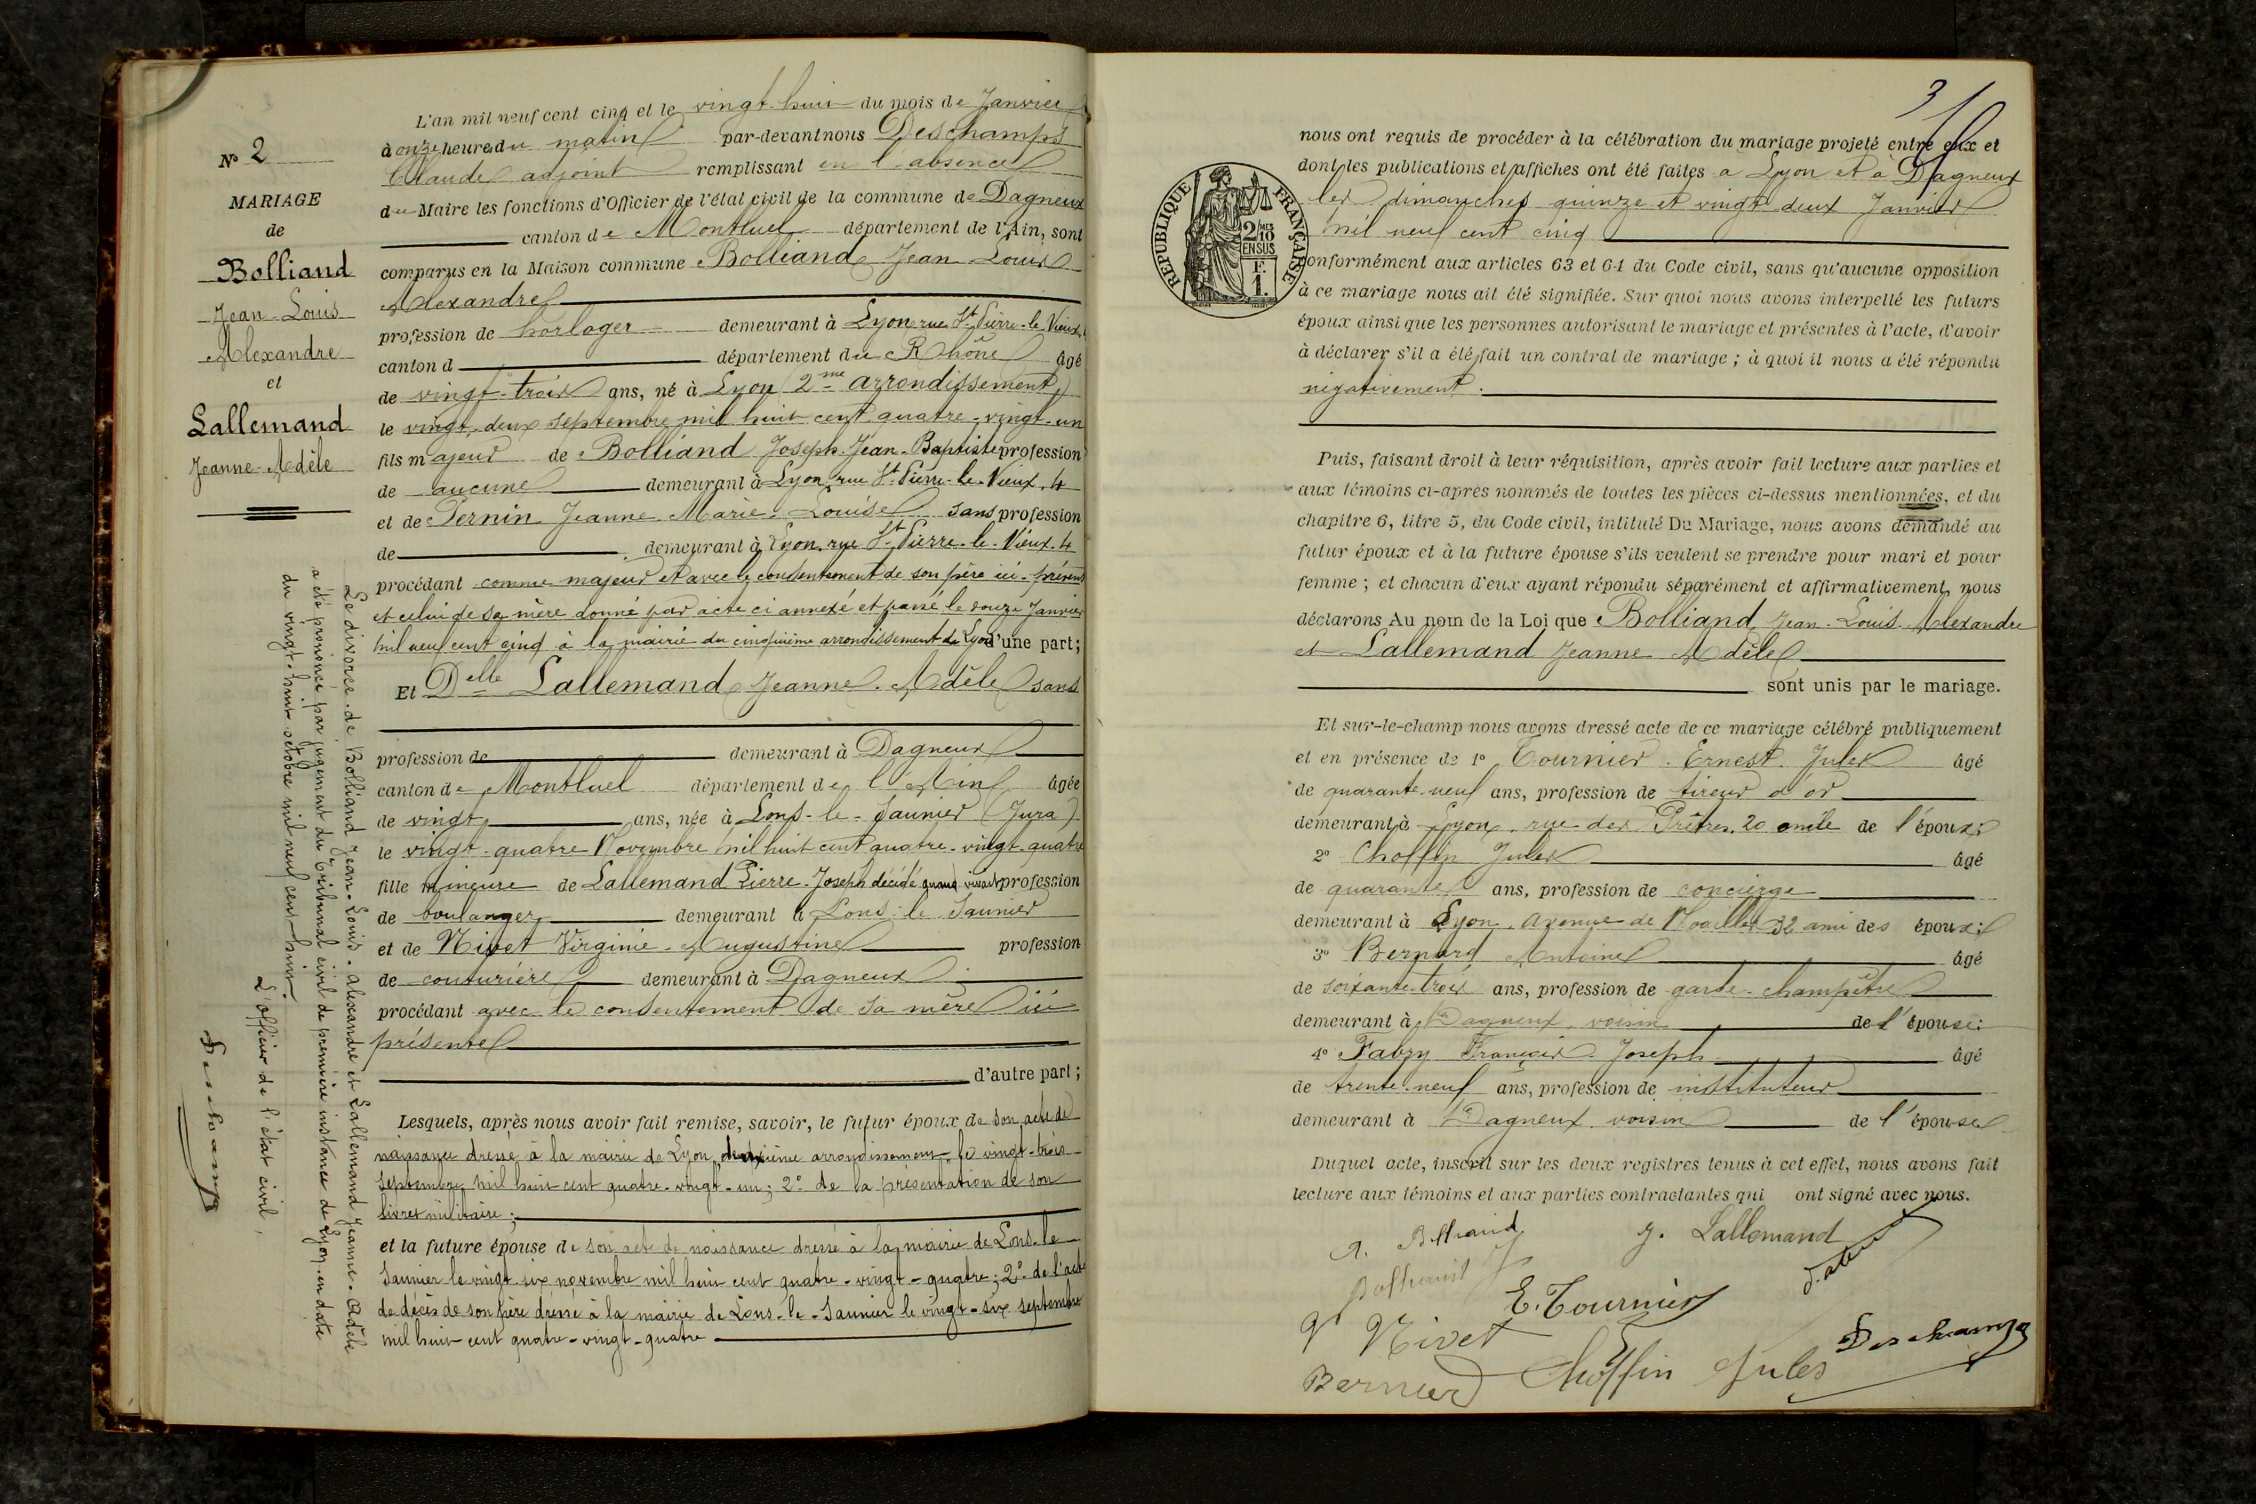 N° 2
MARIAGE
de
Bolliand
Jean-Louis
Alexandre
et
Lallemand
Jeanne-Adèle
Le divorce de Bolliand Jean-Louis-Alexandre et Lallemand Jeanne-Adèle
a été prononcé par jugement du tribunal civil de première instance de Lyon en date
du vingt-huit octobre mil neuf cent huit.
L'officier de l'état civil,
Deschamps
L'an mil neuf cent cinq et le vingt huit du mois de Janvier
à onze heures du matin par-devant nous Deschamps
Claude adjoint remplissant en l'absence
du Maire les fonctions d'Officier de l'état civil de la commune de Dagneux
canton de Montluel département de l'Ain, sont
comparus en la Maison commune Bolliand Jean Louis
Alexandre
profession de horloger demeurant à Lyon rue St Pierre-le-Vieux, 4
canton d département du Rhône âgé
de vingt-trois ans, né à Lyon (2me arrondissement)
le vingt-deux septembre mil huit cent quatre-vingt-un
fils majeur de Bolliand Joseph-Jean-Baptiste profession
de aucune demeurant à Lyon, rue St Pierre-le-Vieux, 4
et de Pernin Jeanne Marie-Louise sans profession
de demeurant à Lyon, rue St Pierre-le-Vieux, 4
procédant comme majeur et avec le consentement de son père ici-présent
et celui de sa mère donné par acte ci annexé et passé le douze Janvier
mil neuf cent cinq à la mairie du cinquième arrondissement de Lyon d'une part;
Et Delle Lallemand Jeanne-Adèle sans
profession de demeurant à Dagneux
canton de Montluel département de l'Ain âgée
de vingt ans, née à Lons-le-Saunier (Jura)
le vingt-quatre Novembre mil huit cent quatre-vingt-quatre
fille mineure de Lallemand Pierre-Joseph décédé quand vivant profession
de boulanger demeurant à Lons-le Saunier
et de Nivet Virginie-Augustine profession
de couturière demeurant à Dagneux
procédant avec le consentement de sa mère ici
présente
d'autre part;
Lesquels, après nous avoir fait remise, savoir, le futur époux de son acte de
naissance dressé à la mairie de Lyon, deuxième arrondissement, le vingt-trois
Septembre mil huit cent quatre-vingt-un; 2° de la présentation de son
livret militaire;
et la future épouse de son acte de naissance dressé à la mairie de Lons-le
Saunier le vingt-six novembre mil huit cent quatre-vingt-quatre; 2° de l'acte
de décès de son père dressé à la mairie de Lons-le-Saunier le vingt-six septembre
mil huit cent quatre-vingt-quatre
3
REPUBLIQUE FRANÇAISE
2/10 MES
EN SUS
F.
1.
nous ont requis de procéder à la célébration du mariage projeté entre eux et
dont les publications et affiches ont été faites à Lyon et à Dagneux
les dimanches quinze et vingt deux Janvier
mil neuf cent cinq
conformément aux articles 63 et 64 du Code civil, sans qu'aucune opposition
à ce mariage nous ait été signifiée. Sur quoi nous avons interpellé les futurs
époux ainsi que les personnes autorisant le mariage et présentes à l'acte, d'avoir
à déclarer s'il a été fait un contrat de mariage; à quoi il nous a été répondu
négativement.
Puis, faisant droit à leur réquisition, après avoir fait lecture aux parties et
aux témoins ci-après nommés de toutes les pièces ci-dessus mentionnées, et du
chapitre 6, titre 5, du Code civil, intitulé Du Mariage, nous avons demandé au
futur époux et à la future épouse s'ils veulent se prendre pour mari et pour
femme; et chacun d'eux ayant répondu séparément et affirmativement, nous
déclarons Au nom de la Loi que Bolliand Jean-Louis-Alexandre
et Lallemand Jeanne Adèle
sont unis par le mariage.
Et sur-le-champ nous avons dressé acte de ce mariage célébré publiquement
et en présence de 1° Tournier Ernest-Jules âgé
de quarante-neuf ans, profession de tireur d'or
demeurant à Lyon, rue des Prêtres, 20 de l'époux;
2° Choffin Jules âgé
de quarante ans, profession de concierge
demeurant à Lyon, avenue de Noailles 32 ami des époux;
3° Bernard Antoine âgé
de soixante-trois ans, profession de garde-champêtre
demeurant à Dagneux, voisin de l'épouse;
4° Fabry François-Joseph âgé
de trente-neuf ans, profession de instituteur
demeurant à Dagneux voisin de l'épouse
Duquel acte, inscrit sur les deux registres tenus à cet effet, nous avons fait
lecture aux témoins et aux parties contractantes qui ont signé avec nous.
A. Bolliand J. Lallemand
Bolliand
E. Tournier
Vve Nivet
Deschamps
Bernard Choffin Jules